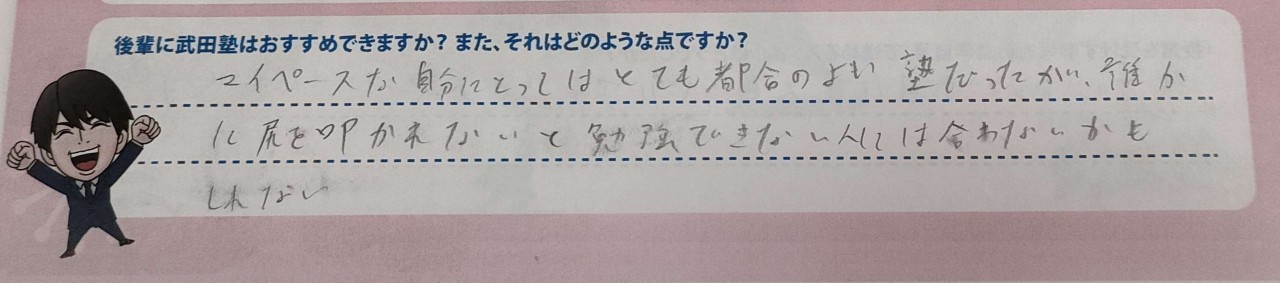 後輩に武田塾はおすすめできますか？また、それはどのような点ですか？
マイペースな自分にとってはとても都合のよい塾だったが、誰か
に尻を叩かれないと勉強できない人には合わないかも
しれない